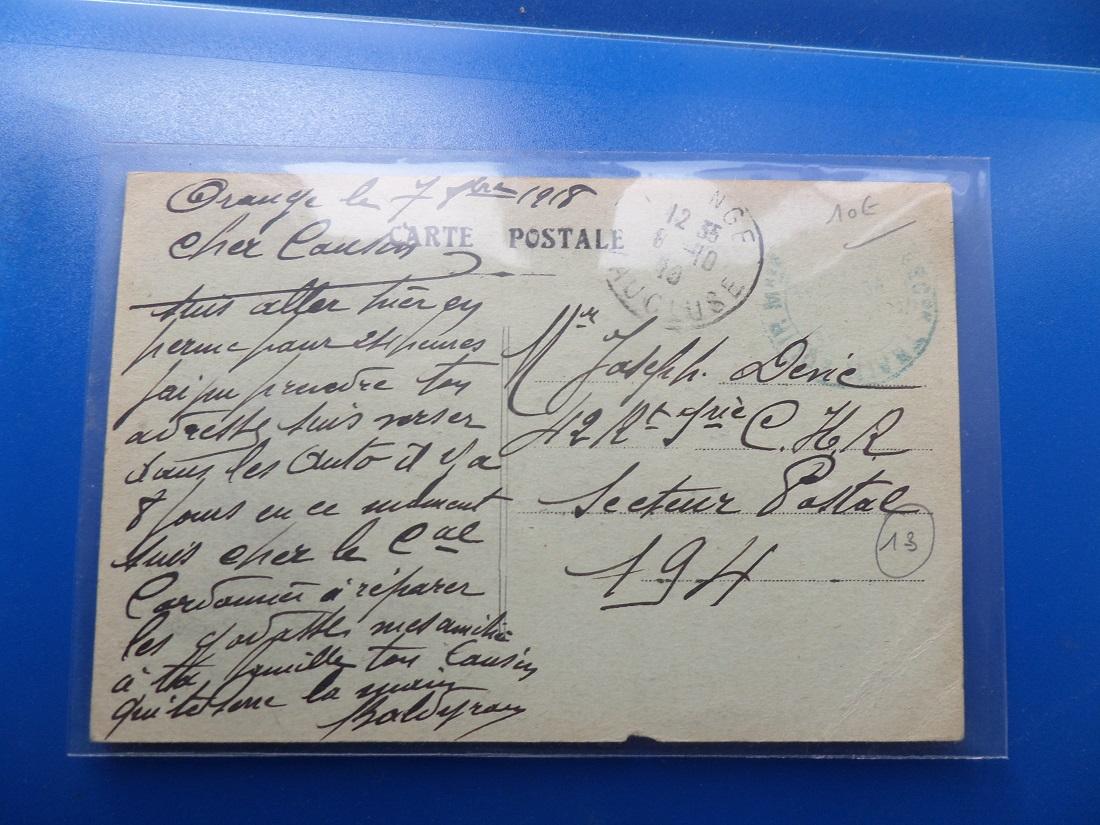 Orange le 7 8bre 1918
CARTE POSTALE
cher Cousin
suis aller hier en
perme pour 24 heures
j'ai pu prendre ton
adresse suis verser
dans les auto il y a
8 jours en ce moment
suis cher le Cal
Cordonnié à réparer
les godasses mes amitié
à ta famille ton Cousin
qui te serre la main
NGE
12 35
8 -10
18
AUCLUSE
10€
Mr Joseph Devic
42 Rt C. H. R.
Secteur Postal
194
13